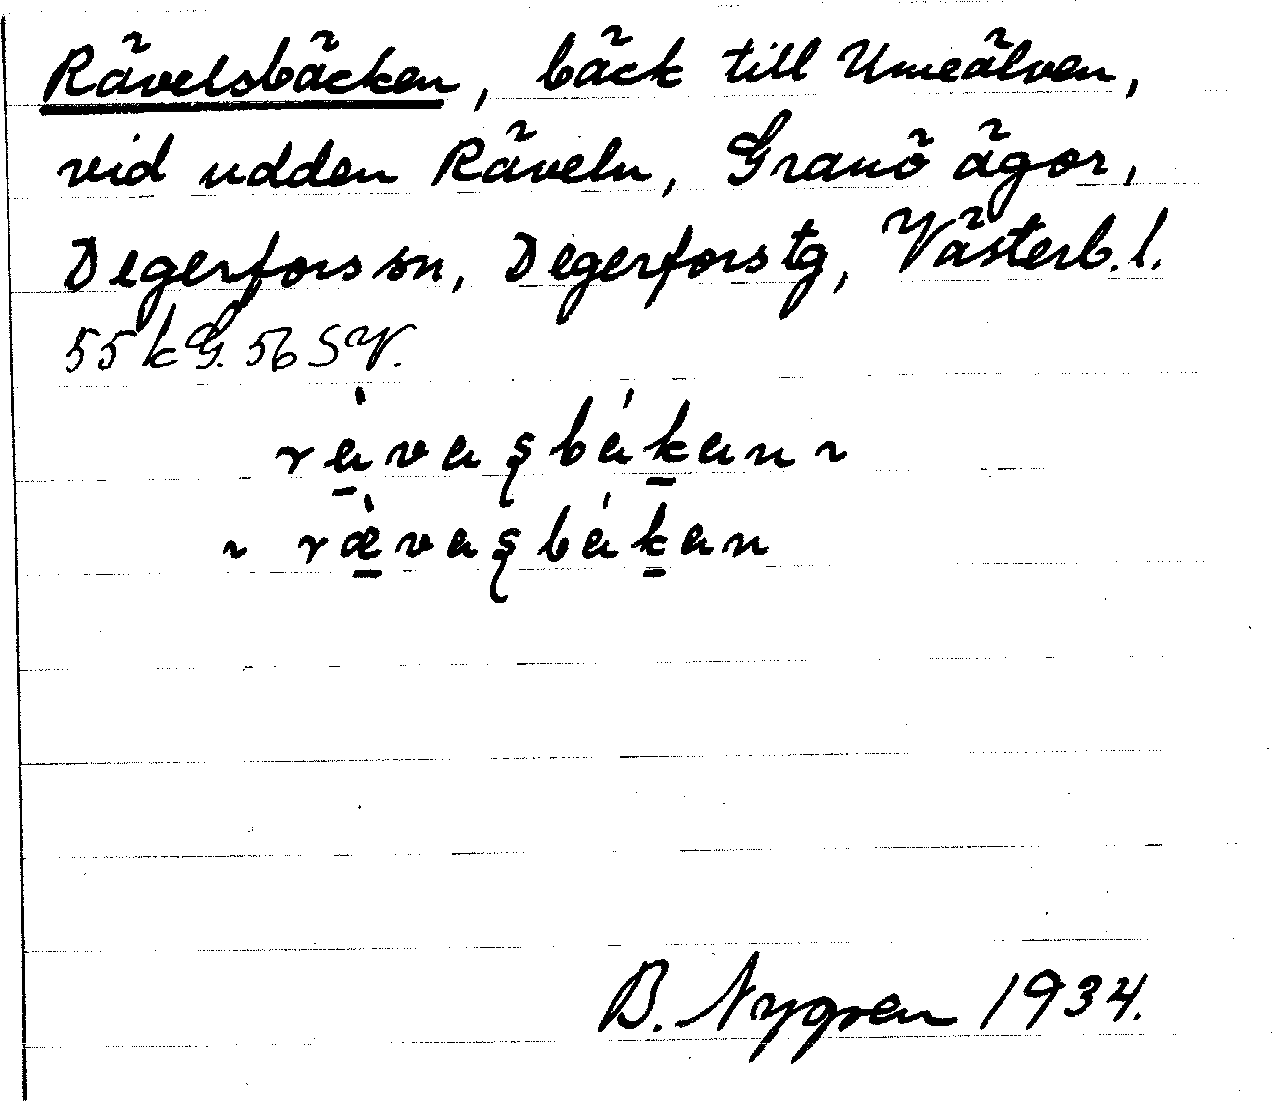 Rävelsbäcken, bäck till Umeälven,
vid udden Räveln, Granö ägor,
Degerfors sn, Degerfors tg, Västerb. l.
55 k G. 56 SV.
B. Nygren 1934.